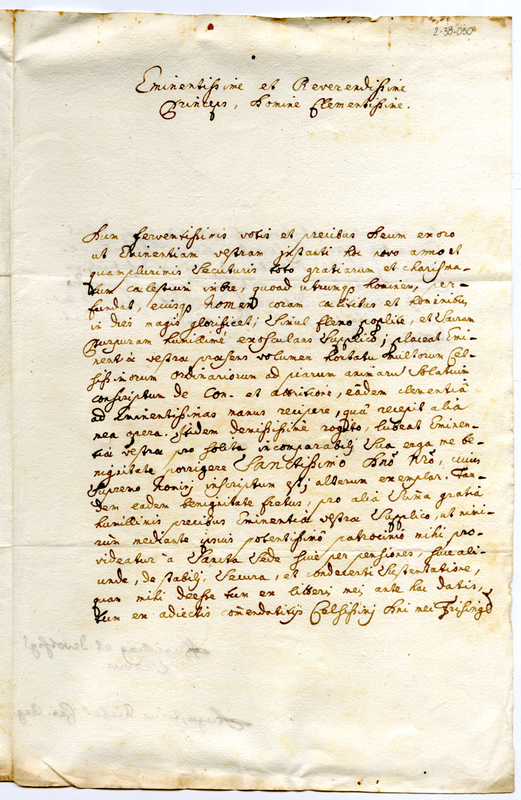 2-38-050
Eminentissime et Reverendissime
Princeps, Domine Clementissime.
Dum ferventissimis votis et precibus Deum exoro
ut Eminentiam vestram instanti hoc novo anno et
quamplurimis secuturis toto gratiarum et charisma-
tum cælestium imbre, quoad utrumq hominem, per-
fundat, eiusq nomen coram cælitibus et hominibus
in dies magis glorificet; simul flexo poplite, et Sacram
Purpuram humillime exosculans supplico; placeat Emi-
nentiæ vestræ præsens volumen hortatu multorum Cel-
sissimorum Ordinariorum ad piarum animarum solatium
conscriptum de Con- et attritione, eâdem clementiâ
ad Eminentissimas manus recipere, quâ recepit alia
mea opera. Itidem demississime rogito, lubeat Eminen-
tiæ vestræ pro solita incomparabili sua erga me be-
nignitate porrigere Sanctissimo Dnō Nrō, cuius
Supremo Nomini inscriptum est, alterum exemplar. Tan-
dem eadem benignitate fretus, pro aliâ summa gratiâ
humillimis precibus Eminentiæ vestræ supplico, ut mihi-
rum mediante ipsius potentissimo patrocinio mihi pro-
videatur à Sancta Sede sive per pensiones, sive ali-
unde, de stabili, secura, et condecenti sustentatione,
quam mihi deesse tum ex litteris meis ante hac datis,
tum ex adiectis comendatitijs Celsissimi Dni mei Frising